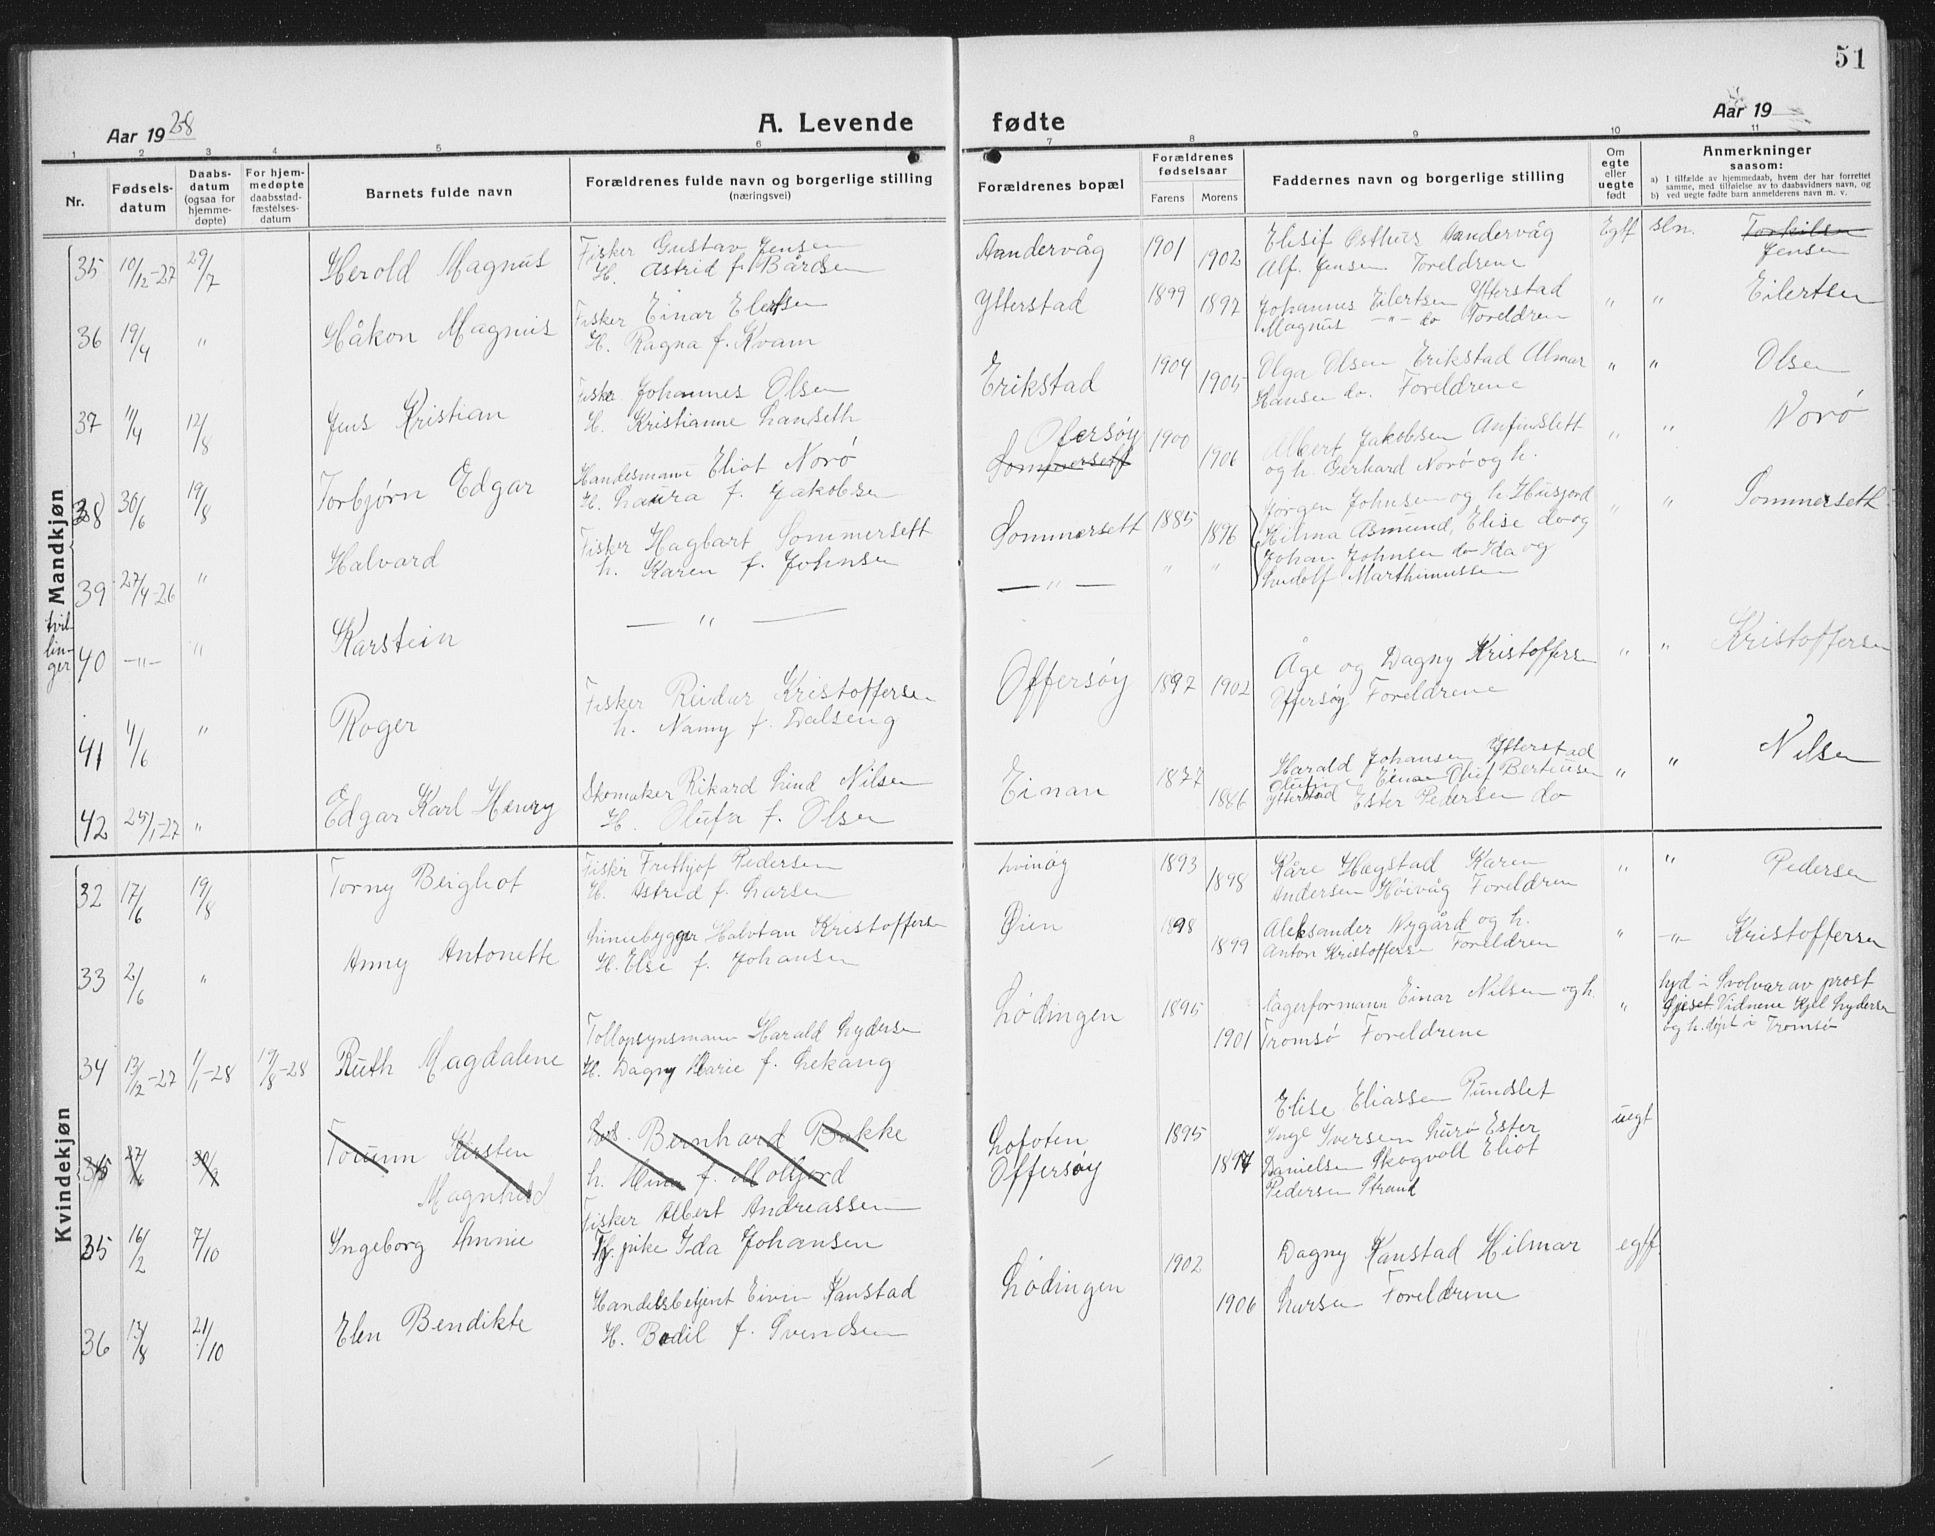 51
Aar 1928
A. Levende fødte
Aar 19
1 2 3 4 5 6 7 8 9 10 11
Nr.
Fødsels-
datum
Daabs-
datum
(ogsaa for
hjemme-
døpte)
For hjem-
medøpte
daabsstad-
fæstelses-
datum
Barnets fulde navn
Forældrenes fulde navn og borgerlige stilling
(næringsvei)
Forældrenes bopæl
Forældrenes
fødselsaar
Farens Morens
Faddernes navn og borgerlige stilling
Om
egte
eller
uegte
født
Anmerkninger
saasom:
a) I tilfælde av hjemmedaab, hvem der har forrettet
samme, med tilføielse av to daabsvidners navn, og
b) ved uegte fødte barn anmelderens navn m. v.
Mandkjøn
35 10/12-27 29/7 Herold Magnus
Fisker Gustav Jensen
H. Astrid f. Bårdsen
Aandervåg 1901 1902
Elisif Osthus Aandervåg
Alf. Jensen Foreldrene
Egtf sln. Torkilsen
Jensen
36 19/4 " Håkon Magnus
Fisker Einar Eilertsen
H. Ragna f. Kvam
Ytterstad 1899 1897
Johannes Eilertsen Ytterstad
Magnus -"- do Foreldren
" " Eilertsen
37 11/4 12/8 Jens Kristian
Fisker Johannes Olsen
H. Kristianne Hanseth
Erikstad 1904 1905
Olga Olsen Erikstad Almar
Hansen do. Foreldrene
" " Olsen
38 30/6 19/8 Torbjørn Edgar
Handesmann Eliot Norö
H. Laura f. Jakobsen
Offersøy
Sommersett 1900 1906
Albert Jakobsen Anfindslett
og h. Gerhard Norö og h.
" " Norö
39 27/4-26 " Halvard
Fisker Hagbart Sommersett
h. Karen f. Johnsen
Sommersett 1885 1896
Jørgen Johnsen og h. Husjord
Hilma Asmund, Elise do og
Johan Johnsen do Ida og
Ludolf Marthinussen
" " Sommerseth
tvil-
lin-
ger
40 -"- " Karstein
— " —
— " — " "
41 4/6 " Roger
Fisker Reidar Kristoffersen
h. Nanny f. Dalseng
Offersøy 1897 1902
Åge og Dagny Kristoffersen
Offersøy Foreldrene
" " Kristoffersen
42 25/1-27 " Edgar Karl Henry
Skomaker Rikard Lind Nilsen
H. Olufa f. Olsen
Einan 1877 1886
Harald Johansen Ytterstad
Einar Oluf Bertiusen
Ytterstad Ester Pedersen do
" " Nilsen
Kvindekjøn
32 17/6 19/8 Torny Beighot
Fisker Frithjof Pedersen
H. Astrid f. Larsen
Svinøy 1893 1898
Kåre Hagstad Karen
Andersen Höivåg Foreldren
" " Pedersen
33 2/6 " Anny Antonette
Linnebygger Halvtan Kristoffersen
H. Else f. Johansen
Øien 1898 1899
Aleksander Nygård og h.
Anton Kristoffersen Foreldren
" -"- Kristoffersen
34 13/12-27 1/1-28 19/8-28 Ruth Magdalene
Tollopsynsmann Harald Lydersen
H. Dagny Marie f. Lekang
Lødingen 1895 1901
Lagerformann Einar Nilsen og h.
Tromsø Foreldrene
" hjd i Svolvær av prost
Gjeset. Vidnene Kjel Lydersen
og h. døpt i Tromsø
35 27/6 30/9 Torunn Kirsten
Magnhild
Los. Bernhard Bakke
h. Mina f. Molfjord
35 16/2 7/10 Ingeborg Annie
Fisker Albert Andreassen
Tj. pike Ida Johansen
Lofoten
Offersøy 1895 1897
Elise Eliassen Rundslet
Inge Iversen Lurø Ester
Danielsen Skogvoll Eliot
Pedersen Strand
uegt
36 13/8 21/10 Elen Bendikte
Handelsbetjent Eivin Kanstad
H. Bodil f. Svendsen
Lødingen 1902 1906
Dagny Kanstad Hilmar
Larsen Foreldrene
egtf